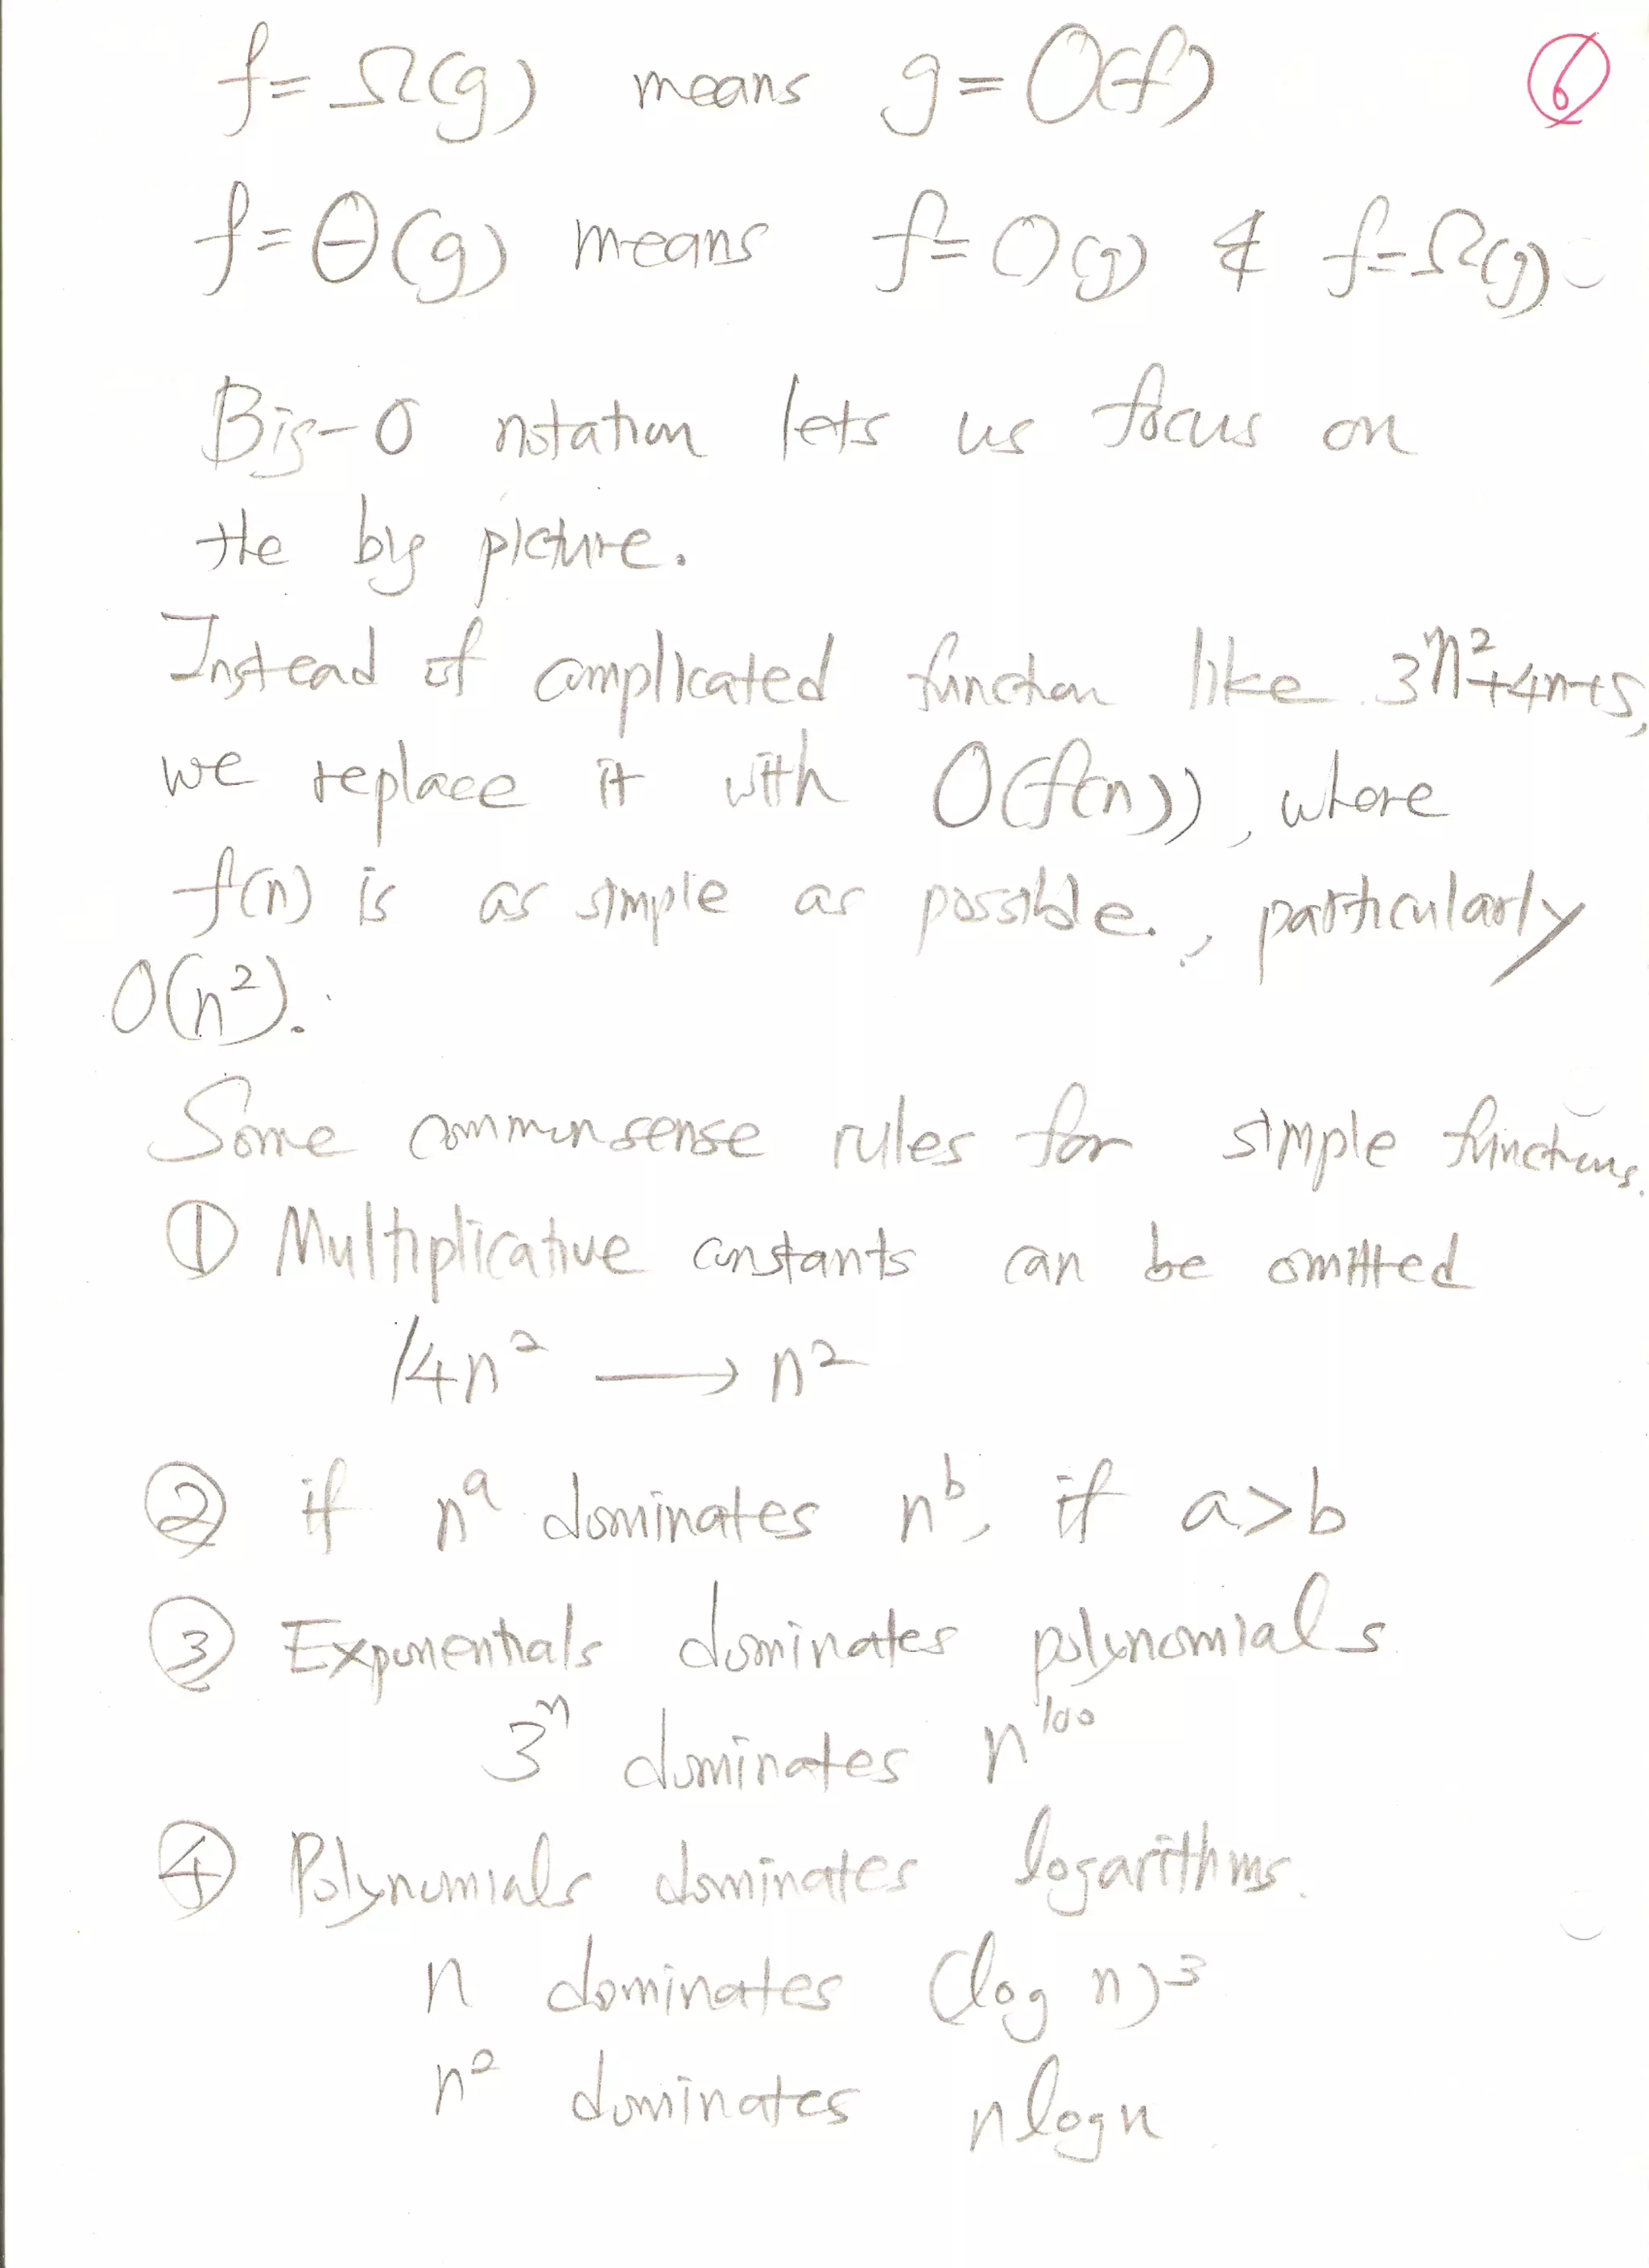 f = Ω(g) means g = O(f)
⑥
f = Θ(g) means f = O(g) & f = Ω(g)
Big-O notation lets us focus on
the big picture.
Instead of complicated function like 3n²+4n+5,
we replace it with O(f(n)), where
f(n) is as simple as possible., particularly
O(n²).
Some commonsense rules for simple functions.
① Multiplicative constants can be omitted
14n² → n²
② if nᵃ dominates nᵇ, if a>b
③ Exponentials dominates polynomials
3ⁿ dominates n¹⁰⁰
④ Polynomials dominates logarithms.
n dominates (log n)³
n² dominates n log n